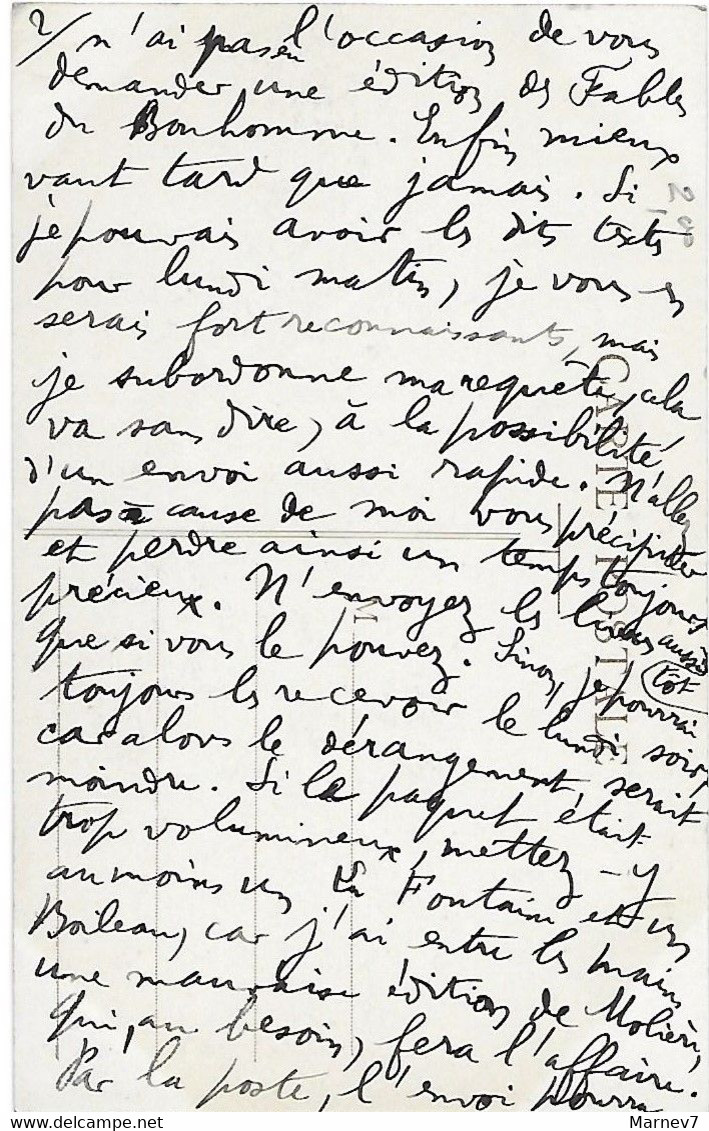 2/ n'ai pas eu l'occasion de vous
demander une édition des Fables
du Bonhomme. Enfin mieux
vaut tard que jamais. Si
je pouvais avoir les dits textes
pour lundi matin, je vous en
serais fort reconnaissants, mais
je subordonne ma requête, cela
va sans dire, à la possibilité
d'un envoi aussi rapide. N'allez
pas à cause de moi vous précipiter
et perdre ainsi un temps toujours
précieux. N'envoyez les livres aussi
tôt
que si vous le pouvez. Sinon, je pourrai
toujours les recevoir le lundi soir,
car alors le dérangement serait
moindre. Si le paquet était
trop volumineux, mettez-y
au moins un La Fontaine et un
Boileau, car j'ai entre les mains
une mauvaise édition de Molière,
qui, au besoin, fera l'affaire.
Par la poste, l'envoi pourra
CARTE POSTALE
M
200
Marnev7